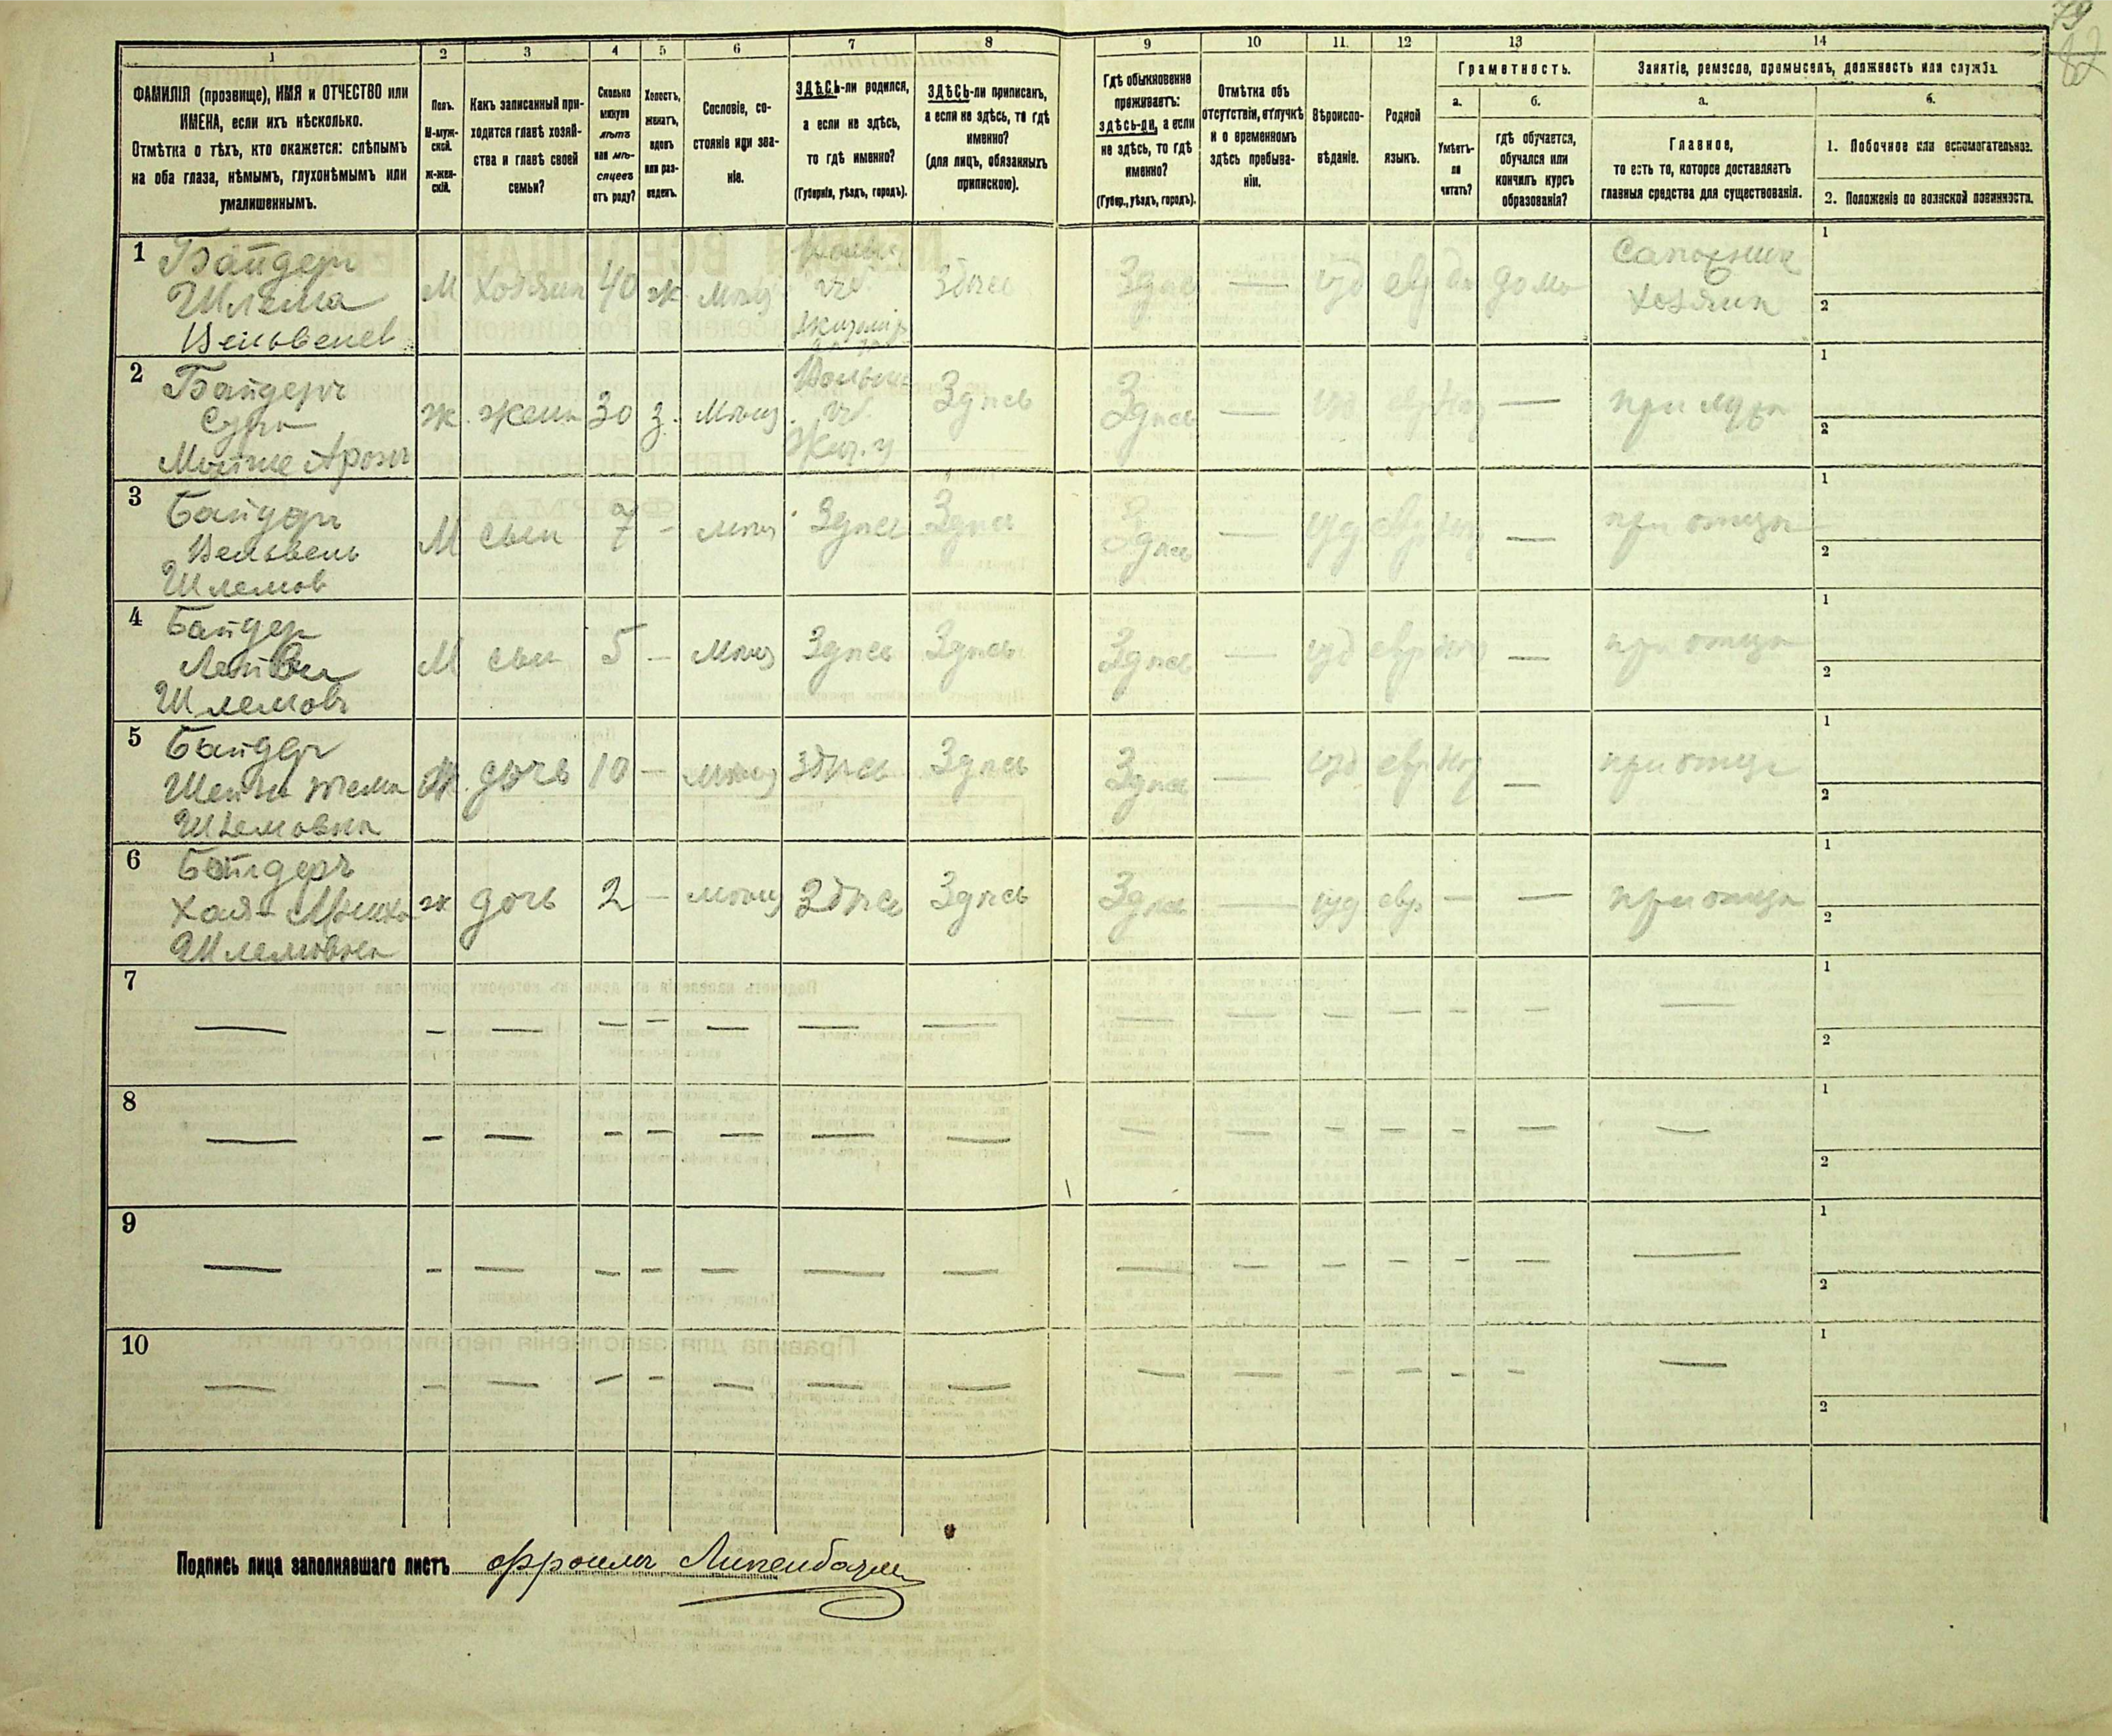 79
82
1
2
3
4
5
6
7
8
9
10
11.
12
13
14
ФАМИЛІЯ (прозвище), ИМЯ и ОТЧЕСТВО или
ИМЕНА, если ихъ нѣсколько.
Отмѣтка о тѣхъ, кто окажется: слѣпымъ
на оба глаза, нѣмымъ, глухонѣмымъ или
умалишеннымъ.
Полъ.
М-муж-
ской.
ж-жен-
скій.
Какъ записанный при-
ходится главѣ хозяй-
ства и главѣ своей
семьи?
Сколько
минуло
лѣтъ
или мѣ-
сяцевъ
отъ роду?
Холостъ,
женатъ,
вдовъ
или раз-
веденъ.
Сословіе, со-
стояніе или зва-
ніе.
ЗДѢСЬ-ли родился,
а если не здѣсь,
то гдѣ именно?
(Губернія, уѣздъ, городъ).
ЗДѢСЬ-ли приписанъ,
а если не здѣсь, то гдѣ
именно?
(для лицъ, обязанныхъ
припискою).
Гдѣ обыкновенно
проживаетъ:
здѣсь-ли, а если
не здѣсь, то гдѣ
именно?
(Губер., уѣздъ, городъ).
Отмѣтка объ
отсутствіи, отлучкѣ
и о временномъ
здѣсь пребыва-
ніи.
Вѣроиспо-
вѣданіе.
Родной
языкъ.
Грамотность.
а.
Умѣетъ-
ли
читать?
б.
гдѣ обучается,
обучался или
кончилъ курсъ
образованія?
Занятіе, ремесло, промыселъ, должность или служба.
а.
Главное,
то есть то, которое доставляетъ
главныя средства для существованія.
б.
1. Побочное или вспомогательное.
2. Положеніе по воинской повинности.
1 Байдеръ
Шлема
Вельвелев
М Хозяин 40 ж Мѣщ
Волын.
губ
Житомір.
здѣсь
Здѣсь — іуд евр да дома
Сапожник
хозяин
1
2
2 Байдеръ
Сура
ж. жена 30 з. Мѣщ.
Волын.
губ.
Жит. у
Здѣсь
Здѣсь — іуд. евр нѣт —
при мужѣ
1
2
3 Байдеръ
Вельвель
Шлемов
М сын 7 - мѣщ Здѣсь Здѣсь
Здѣсь — іуд евр нѣт —
при отцѣ
1
2
4 Байдер
Шлемовъ
М сын 5 — Мѣщ Здѣсь Здѣсь
Здѣсь — іуд евр нѣт —
при отцѣ
1
2
5 Байдеръ
Шлемовна
ж. дочь 10 — мѣщ здѣсь Здѣсь
Здѣсь — іуд евр нѣт —
при отцѣ
1
2
6 Байдеръ
Хая-
Шлемовна
ж дочь 2 — мѣщ Здѣсь Здѣсь
Здѣсь — іуд евр — —
при отцѣ
1
2
7 — — — — — — — — — — — — — — —
1
2
8 — — — — — — — — — — — — — — —
1
2
9 — — — — — — — — — — — — — — —
1
2
10 — — — — — — — — — — — — — — —
1
2
Подпись лица заполнявшаго листъ